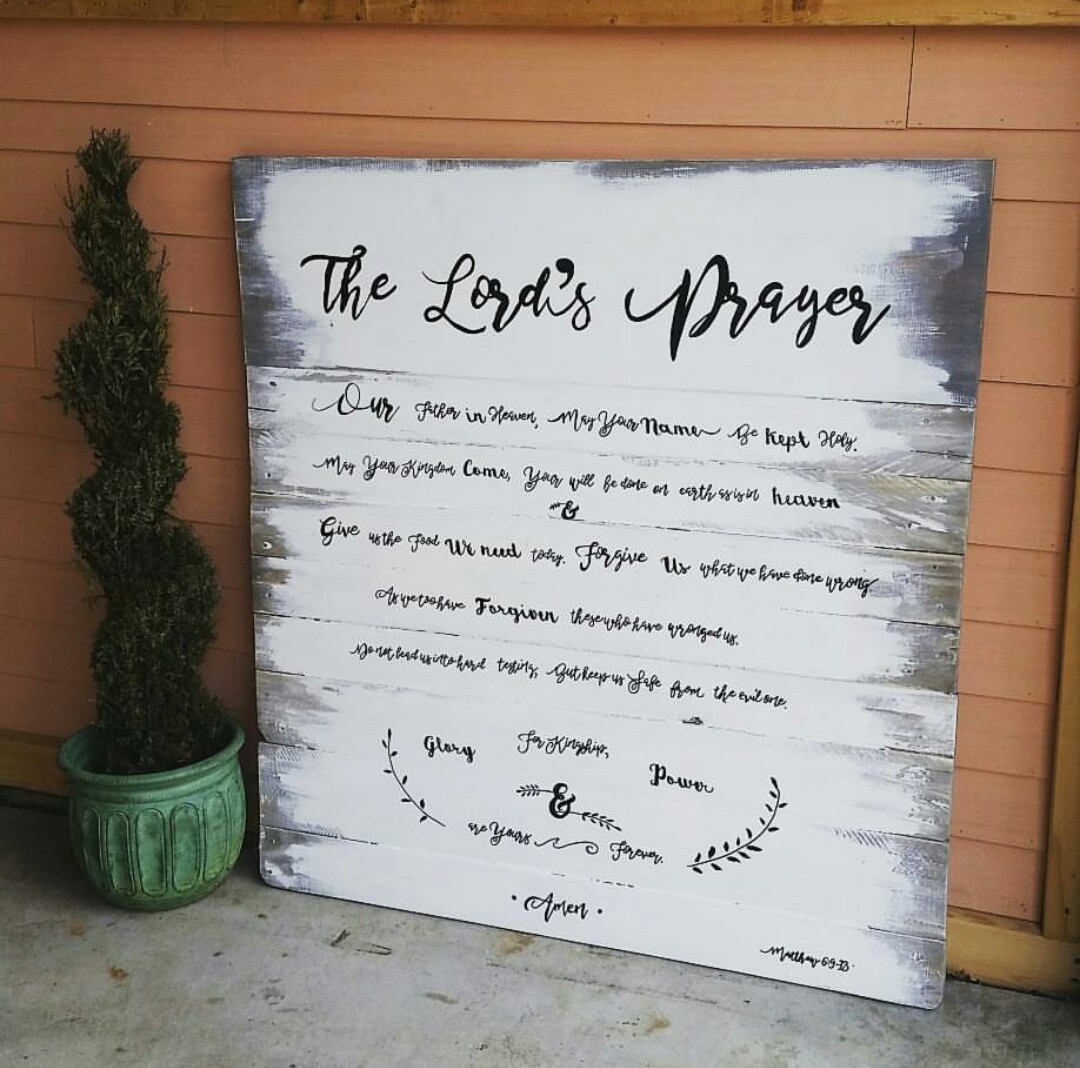 The Lord's Prayer
Our Father in Heaven, May Your Name Be Kept Holy.
May Your Kingdom Come, Your will be done on earth as is in heaven
&
Give us the Food We need today. Forgive Us what we have done wrong.
As we too have Forgiven those who have wronged us.
Do not lead us into hard testing, But keep us Safe from the evil one.
Glory For Kingship, Power
&
are Yours Forever.
• Amen •
Matthew 6:9-13